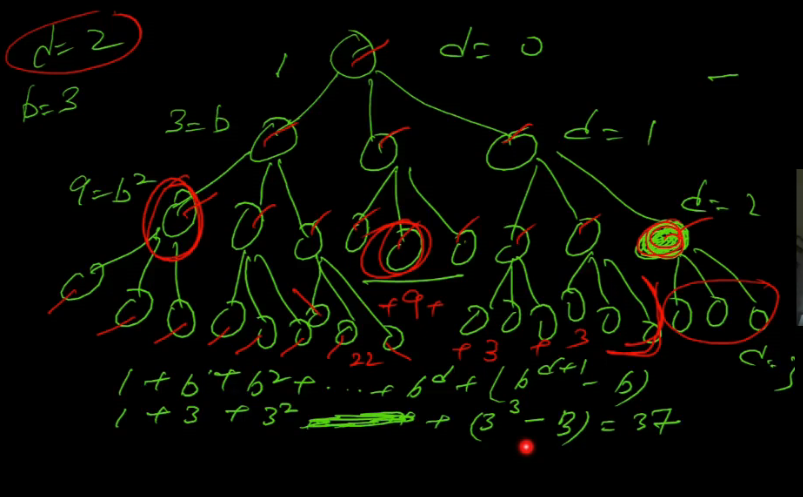 d=2
1
d= 0
b=3
3=b
d= 1
9=b²
d=2
+9+
22
+3
+3
d=3
1 + b + b² + ... + b^d + (b^(d+1) - b)
1 + 3 + 3² + (3³ - 3) = 37